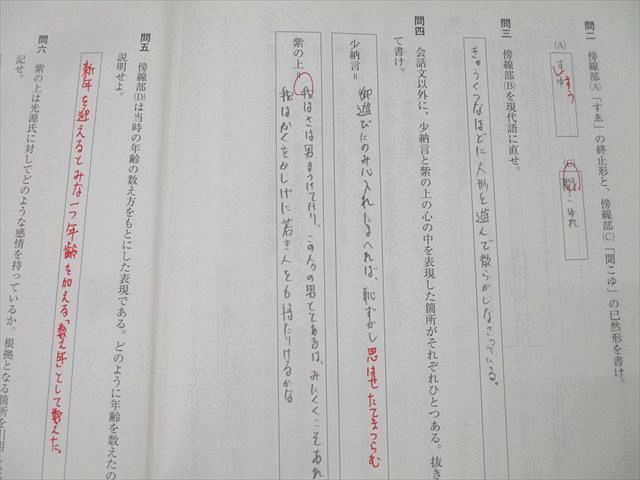 問二 傍線部(A)「すゑ」の終止形と、傍線部(C)「聞こゆ」の已然形を書け。
(A)
すう
(C)
聞こゆれ
問三 傍線部(B)を現代語に直せ。
きゅうくつなほどに人形を遊んで散らかしなさっている。
問四 会話文以外に、少納言と紫の上の心の中を表現した箇所がそれぞれひとつある。抜き
て書け。
少納言=
御遊びにのみ心入れたまへれば、恥ずかし 思はせたてまつらむ
紫の上=
我はさは男まうけてけり、この人々の男とてあるは、みにくくこそあれ
我はかくをかしげに若き人をも持たりけるかな
問五 傍線部(D)は当時の年齢の数え方をもとにした表現である。どのように年齢を数えたの
説明せよ。
新年を迎えるとみな一つ年齢を加える「数え年」として数えた。
問六 紫の上は光源氏に対してどのような感情を持っているか。根拠となる箇所を引用
記せ。